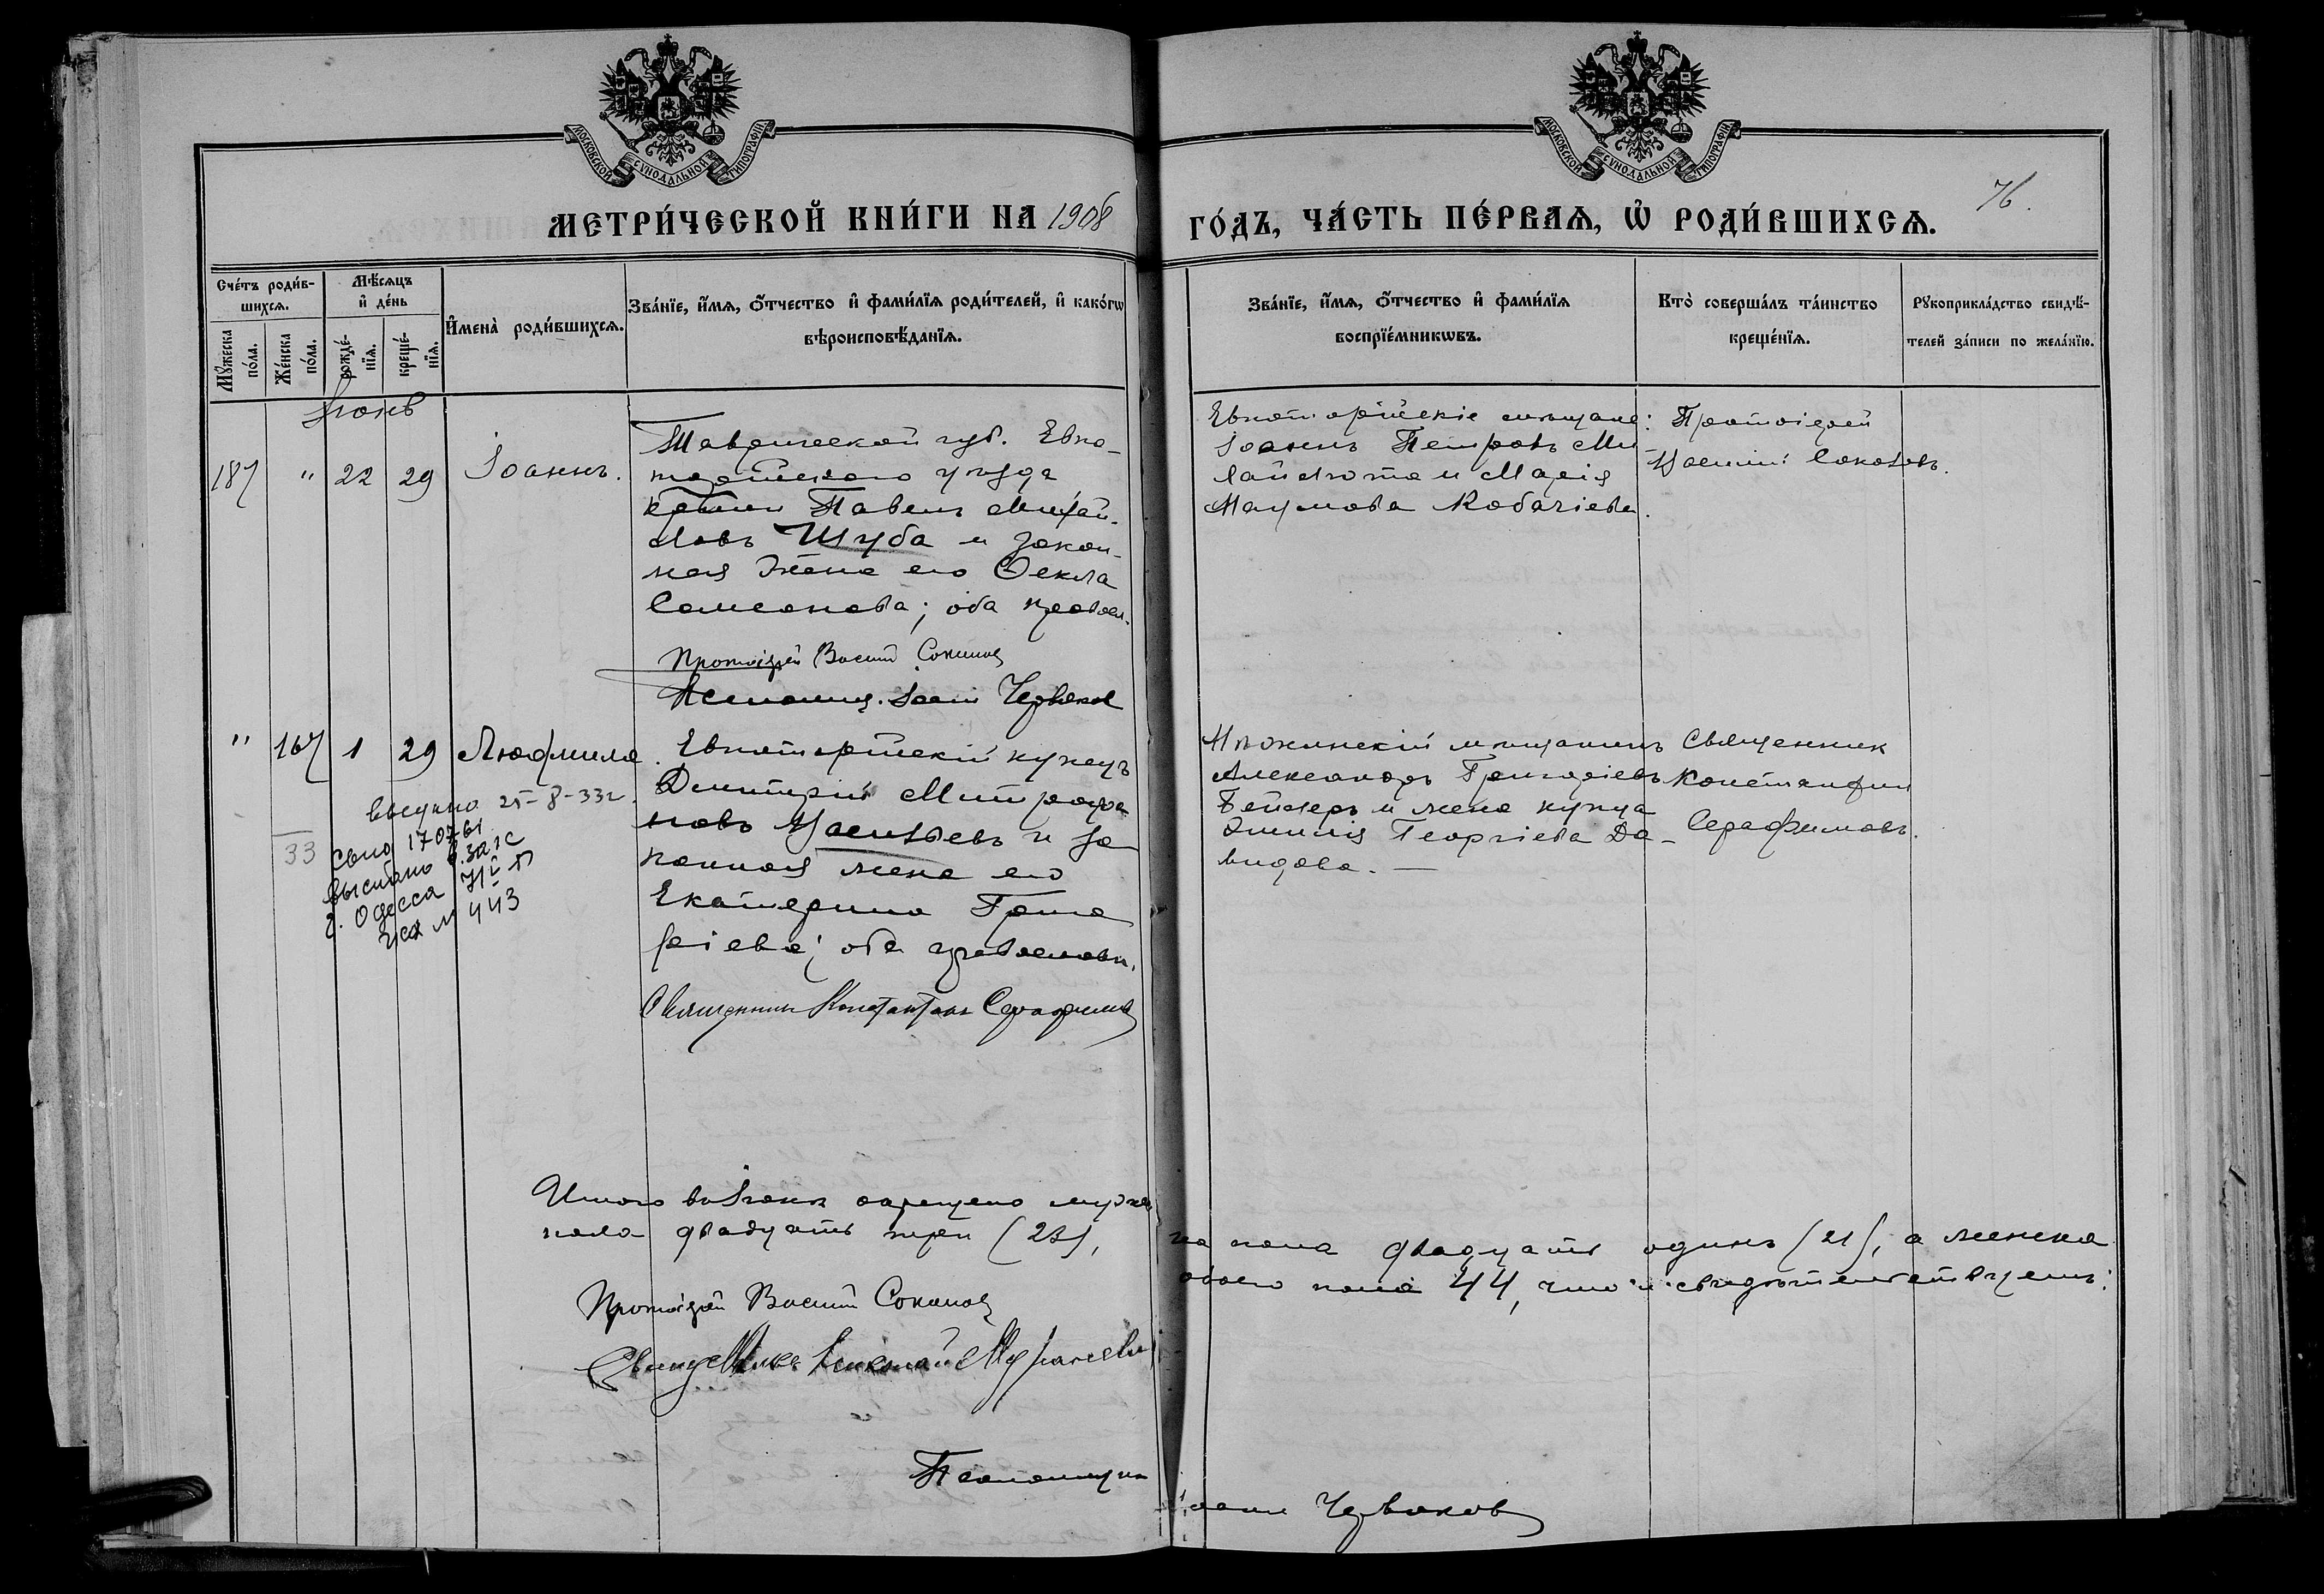 МОСКОВСКОЙ СѴНОДАЛЬНОЙ ТИПОГРАФІИ
МОСКОВСКОЙ СѴНОДАЛЬНОЙ ТИПОГРАФІИ
МЕТРИ́ЧЕСКОЙ КНИ́ГИ НА 1908 ГО́ДЪ, ЧА́СТЬ ПЕ́РВАѦ, Ѽ РОДИ́ВШИХСѦ.
76.
Сче́тъ роди́в-
шихсѧ.
Мꙋ́жеска
по́ла.
Же́нска
по́ла.
Мѣ́сѧцъ
и҆ де́нь
рожде́-
нїѧ.
креще́-
нїѧ.
И҆мена̀ роди́вшихсѧ.
Зва́нїе, и҆́мѧ, ѻ҆́тчество и҆ фами́лїѧ роди́телей, и҆ како́гѡ
вѣроисповѣ́данїѧ.
Зва́нїе, и҆́мѧ, ѻ҆́тчество и҆ фами́лїѧ
воспрїе́мникѡвъ.
Кто̀ соверша́лъ та́инство
креще́нїѧ.
Рꙋкоприкла́дство свидѣ́-
телей за́писи по жела́нїю.
Іюнь
187 " 22 29 Іоаннъ.
Таврической губ. Евпа-
торійскаго уѣзда
Павелъ Михай-
ловъ Шуба и закон-
ная жена его Ѳекла
Самсонова; оба правосл.
Протоіерей Василій Соколовъ
Псаломщ. Іоаннъ Червяков
Евпаторійскіе мѣщане:
Іоаннъ Петровъ Ми
лайлота и Марія
Наумова Кобачіева.
Протоіерей
Василій Соколовъ.
" 167 1 29 Людмила.
Евпаторійскій купецъ
Дмитрій Митрофа
новъ Васильевъ и за
конная жена его
Екатерина Григо
ріева; оба православн.
Священникъ Константинъ Серафимовъ
Нѣжинскій мѣщанинъ
Александръ Григоріевъ
и жена купца
Георгіева Да-
видова. —
Священникъ
Константинъ
Серафимовъ.
25-8-33г.
33
выслано
г. Одесса
исх № 443
Итого въ Іюнѣ окрещено мужеска пола двадцать одинъ (21), а женска
пола двадцать три (23), обоего пола 44, что и свидѣтельствуемъ:
Протоіерей Василій Соколовъ
Псаломщикъ Іоаннъ Червяковъ